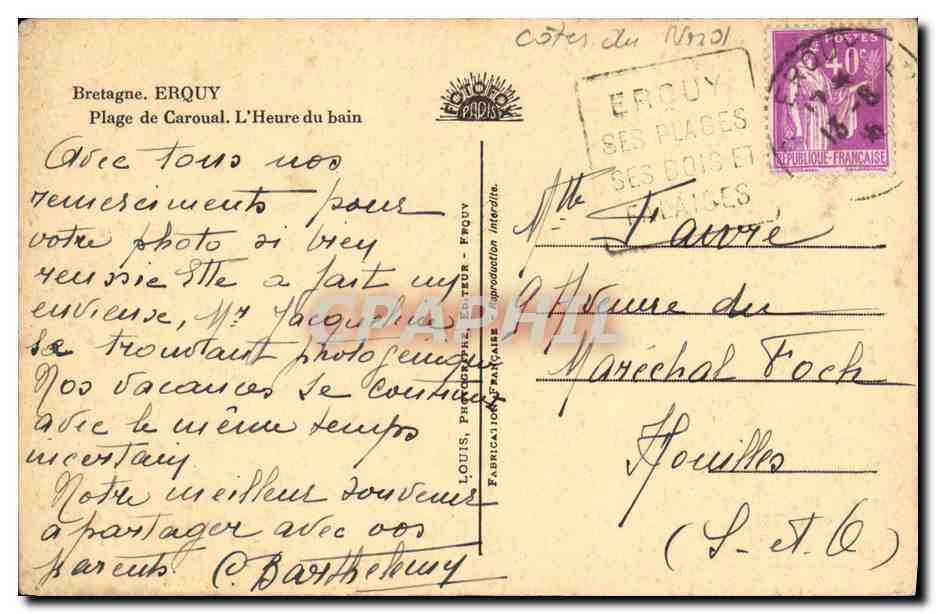 Côtes du Nord
Bretagne. ERQUY
Plage de Caroual. L'Heure du bain
FOTOFOX
PARIS
ERQUY
SES PLAGES
SES BOIS ET
FALAISES
POSTES
40c
RÉPUBLIQUE-FRANÇAISE
ERQUY
13 -8
Avec tous nos
remerciments pour
votre photo si bien
reussie Elle a fait un
envieux, Mr Jacqueline
se trouvant photogenique
Nos vacances se continuent
avec le même temps
incertain
Notre meilleur souvenir
a partager avec vos
parents C. Barthelemy
LOUIS, PHOTOGRAPHE, EDITEUR - ERQUY
FABRICATION FRANÇAISE - Reproduction Interdite.
Mlle Favre
9 Avenue du
Maréchal Foch
Houilles
(S-et-O)
CPAPHIL